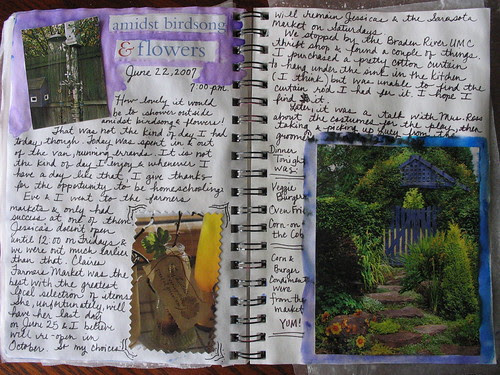 amidst birdsong
& flowers
June 22, 2007
7:00 p.m.
How lovely it would
be to shower outside
amidst birdsong & flowers!
That was not the kind of day I had
today though. Today was spent in & out
of the van, running errands. It is not
the kind of day I enjoy & whenever I
have a day like that, I give thanks
for the opportunity to be homeschooling.
Eve & I went to the farmers
markets & only had
success at one of them.
Jessica's doesn't open
until 12:00 on Fridays &
we were out much earlier
than that. Claires
Farmers Market was the
best with the greatest
local selection of items.
She, unfortunately, will
have her last day
on June 25 & I believe
will re-open in
October. So my choices
will remain Jessicas & the Sarasota
Market on Saturdays.
We stopped by the Braden River UMC
thrift shop & found a couple of things.
I purchased a pretty cotton curtain
to hang under the sink in the kitchen
(I think) but was unable to find the
curtain rod I had for it. I hope I
find it.
Later it was a talk with Mrs. Ross
about the costumes for the play, then
taking & picking up Lucy from the
groomer.
Dinner
Tonight
was:
Veggie
Burgers
Oven Fries
Corn-on
the Cob
Corn &
Burger
condiments
were
from the
market
YUM!